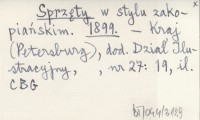 Sprzęty w stylu zako-
piańskim. 1899. – Kraj
(Petersburg), dod. Dział ilu-
stracyjny, , nr 27: 19, il.
CBG